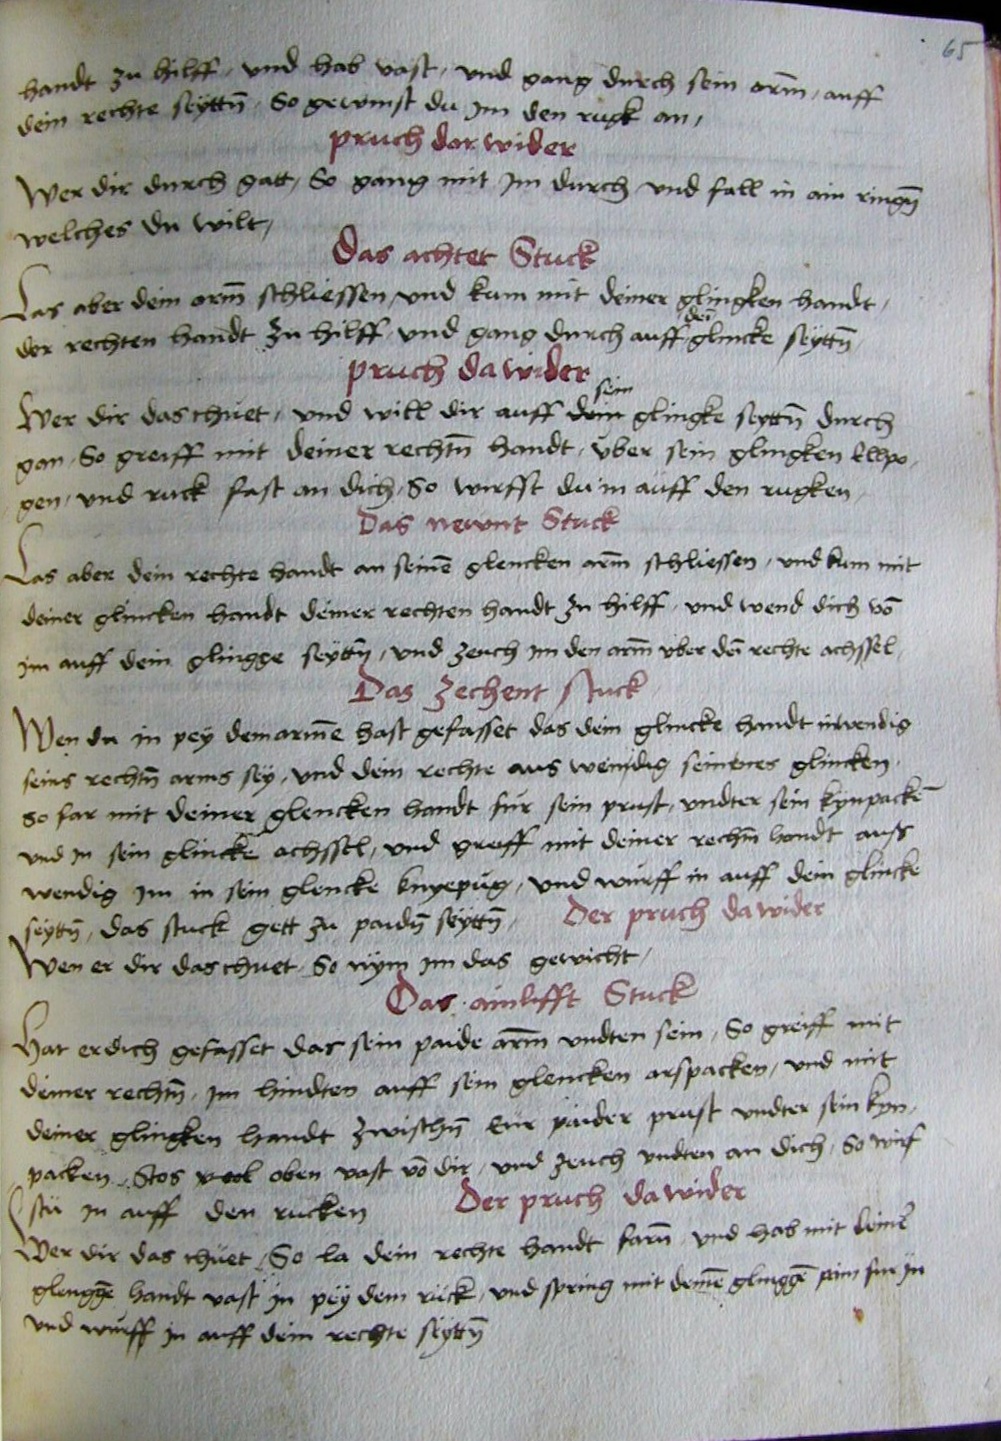 65
handt zu hilff, vnd hab vast, vnd gang durch sein arm̄, auff
dein rechte seyttn̄, So gewinst du im den rugk an,
pruch dar wider
Wer dir durch gatt, So gang mit im durch vnd fall in ain ringn̄
welches du wilt,
Das achtet Stuck
Las aber dein arm̄ schliessen, vnd kum mit deiner glingken handt,
der rechten handt zu hilff, vnd gang durch auff dei glincke seyttn̄,
pruch da wider
Wer dir das thuet, vnd will dir auff dein sein glingke seyttn̄ durch
gan, So greiff mit deiner rechtn̄ handt, über sein glingken Elpo,
gen, vnd ruck fast an dich, So wirffst du in auff den rugken,
Das newnt Stuck
Las aber dein rechte handt an seinē glencken arm̄ schliessen, vnd kum mit
deiner glincken handt deiner rechten handt zu hilff, vnd wend dich vō
im auff dein glingge seyttn̄, vnd zeuch im den arm̄ vber dein̄ rechte achssel,
Das zechent stuck
Wen du in pey den armē hast gefasset das dein glincke handt inwendig
seins rechtn̄ arms sey, vnd dein rechte aus wendig seines glincken,
so far mit deiner glencken handt für sein prust, vndter sein kynpackē
vnd in sein glincke achssel, vnd greiff mit deiner rechtn̄ handt auss
wendig im in sein glencke knyepüg, vnd würff in auff dein glincke
seyttn̄, das stuck gett zu paidn̄ seyttn̄, Der pruch da wider
Wen er dir das thuet, So nym im das gewicht,
Das ainlifft Stuck
Hat er dich gefasset das sein paide arm̄ vndten sein, So greiff mit
deiner rechtn̄, im hindten auff sein glencken arspacken, vnd mit
deiner glingken handt zwischn̄ Eür paider prust vndter sein kyn,
packen, Stos wol oben vast vō dir, vnd zeuch vndten an dich, So wirf
stu in auff den rucken Der pruch da wider
Wer dir das thüet, So la dein rechte handt farn̄, vnd hab mit deinē
glenggē handt vast in pey dem rück, vnd spring mit deinē glinggē pain für in
vnd würff in auff dein rechte seyttn̄